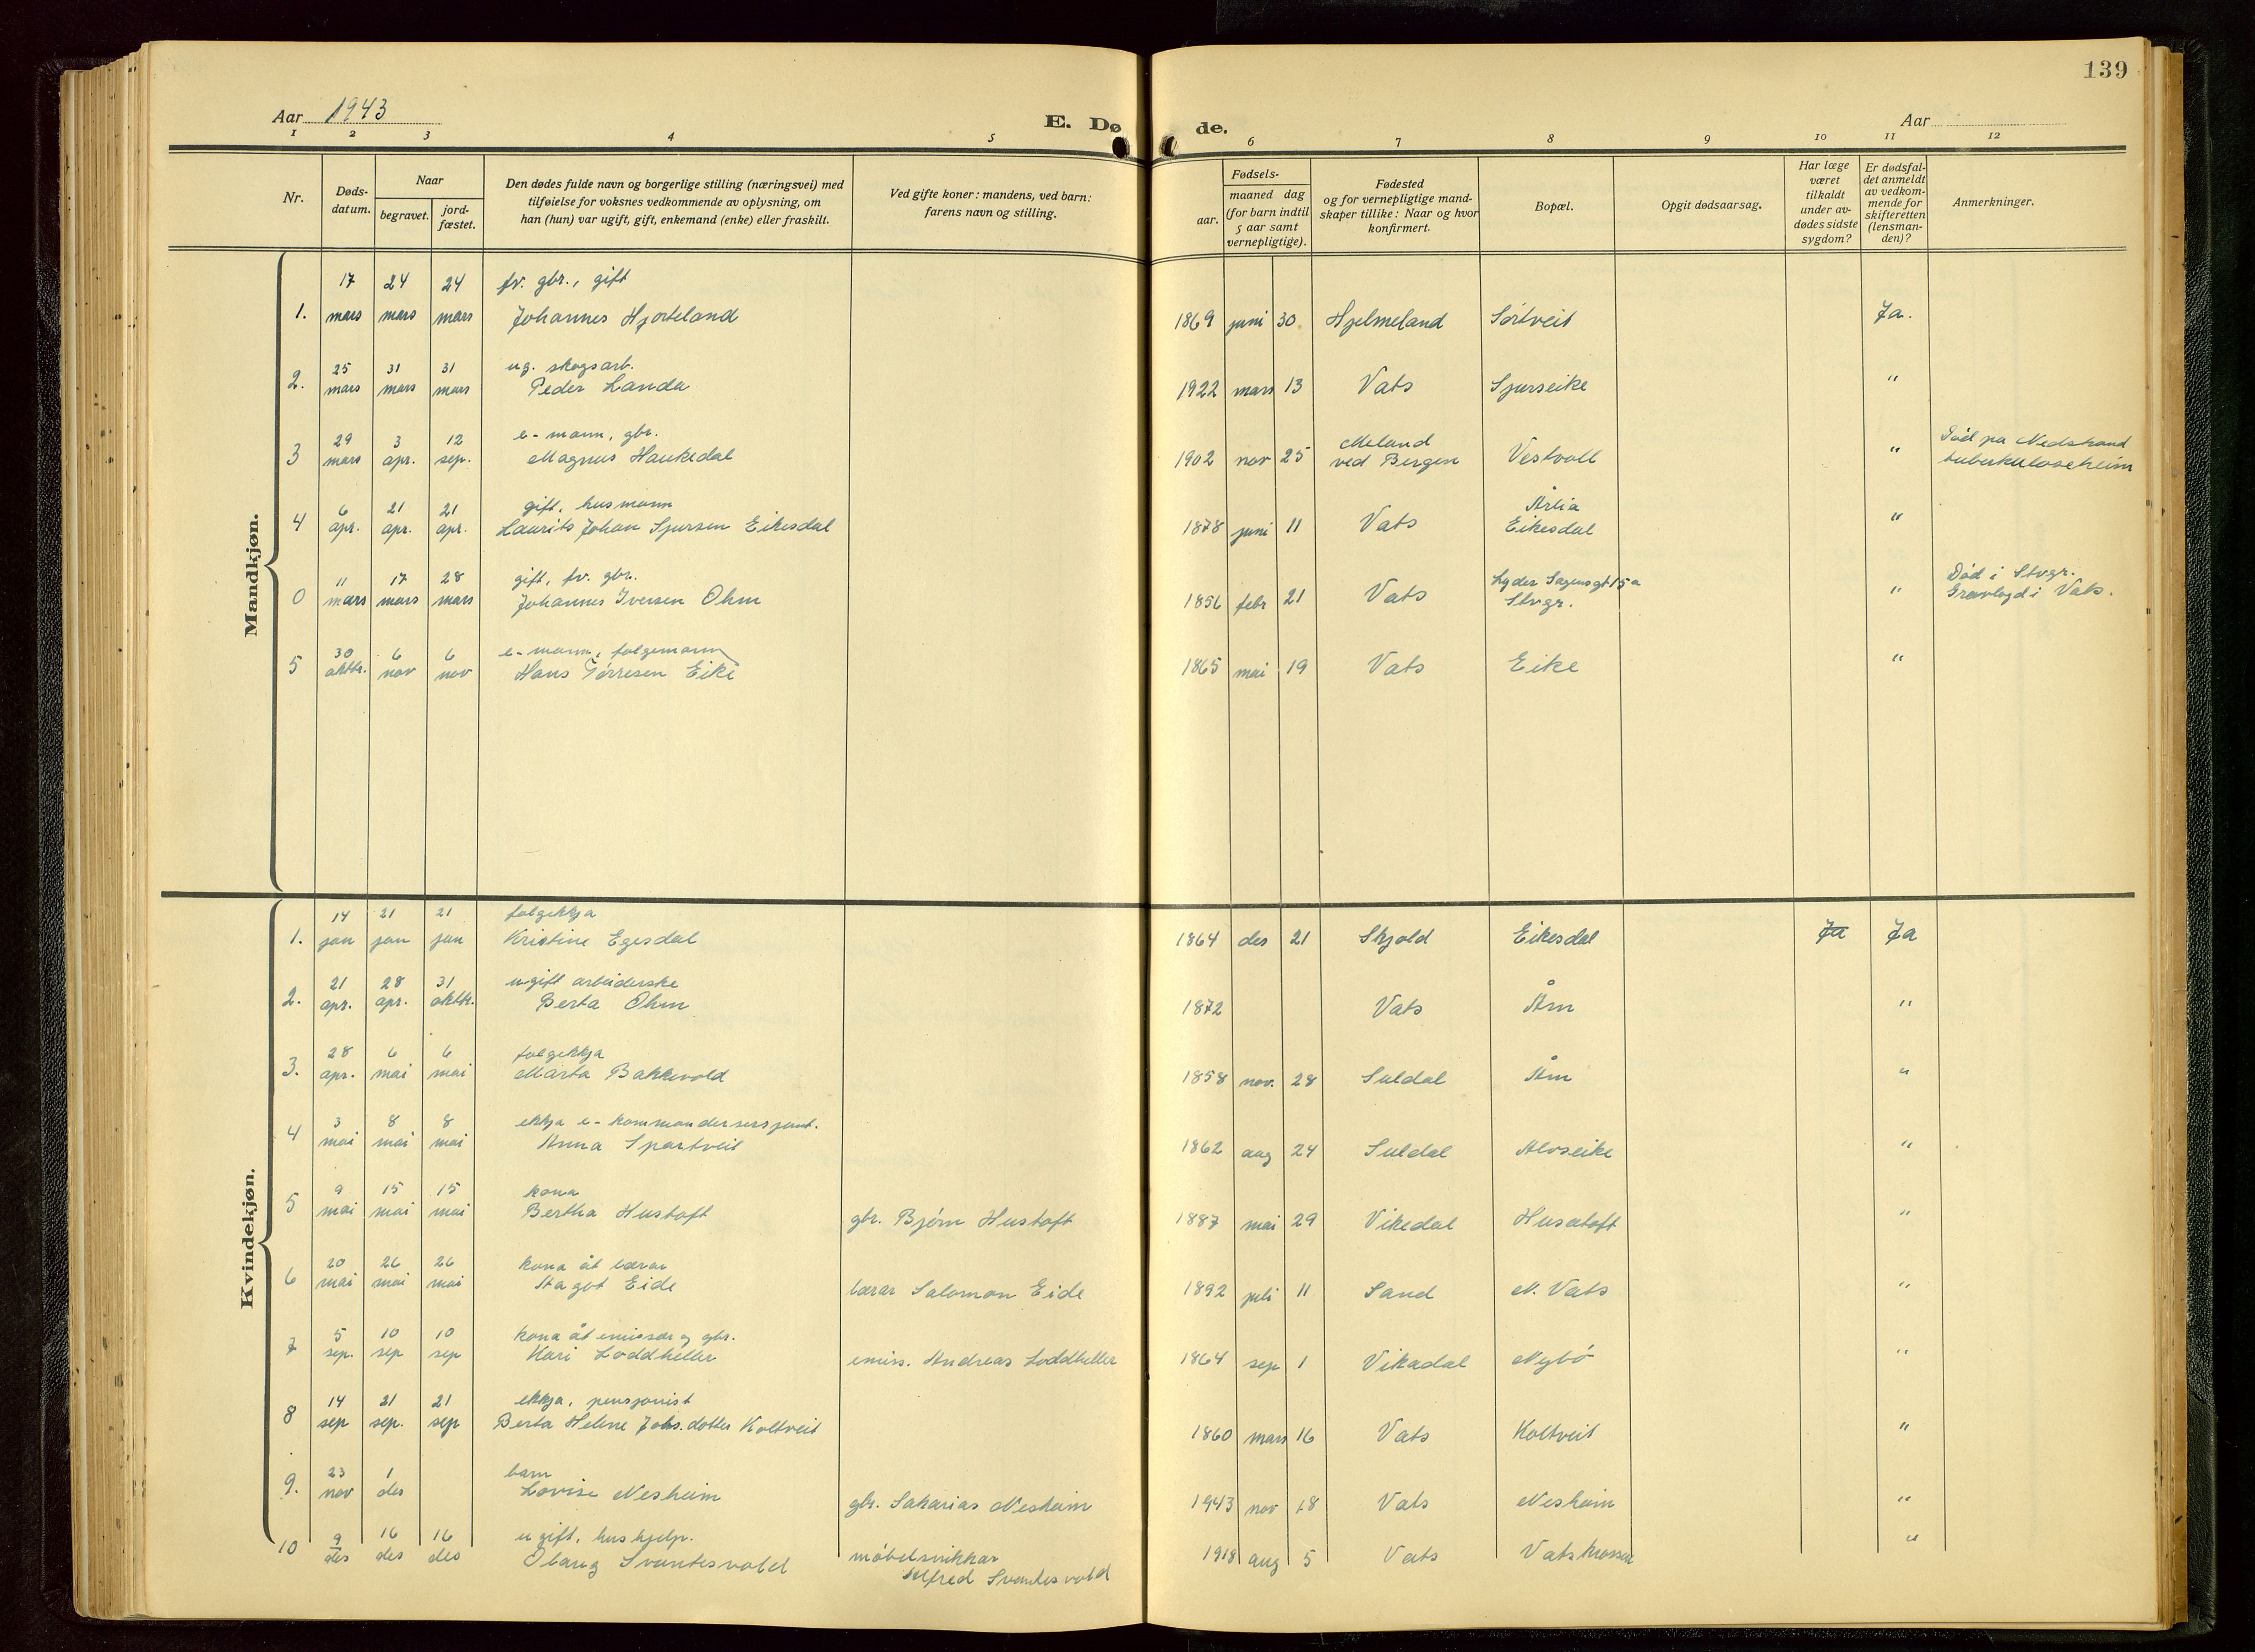 139
Aar 1943
E. Dø
de.
Aar
1 2 3 4 5 6 7 8 9 10 11 12
Nr.
Døds-
datum.
Naar
begravet.
jord-
fæstet.
Den dødes fulde navn og borgerlige stilling (næringsvei) med
tilføielse for voksnes vedkommende av oplysning, om
han (hun) var ugift, gift, enkemand (enke) eller fraskilt.
Ved gifte koner: mandens, ved barn:
farens navn og stilling.
Fødsels-
aar.
maaned dag
(for barn indtil
5 aar samt
vernepligtige).
Fødested
og for vernepligtige mand-
skaper tillike: Naar og hvor
konfirmert.
Bopæl.
Opgit dødsaarsag.
Har læge
været
tilkaldt
under av-
dødes sidste
sygdom?
Er dødsfal-
det anmeldt
av vedkom-
mende for
skifteretten
(lensman-
den)?
Anmerkninger.
Mandkjøn.
17 24 24 fv. gbr., gift
1. mars mars mars Johannes Hjorteland 1869 juni 30 Hjelmeland Sørtveit Ja.
25 31 31 ug. skogsarb.
2. mars mars mars Peder Landa 1922 mars 13 Vats Sjurseike "
29 3 12 e-mann, gbr. Meland Død på Nedstrand
3 mars apr. sep. Magnus Haukedal 1902 nov 25 ved Bergen Vestvoll " tuberkuloseheim
6 21 21 gift, husmann Årlia
4 apr. apr. apr. Laurits Johan Sjursen Eikesdal 1878 juni 11 Vats Eikesdal "
11 17 28 gift, fv. gbr. Lyder Sagensgt 15a Død i Stvgr.
0 mars mars mars Johannes Iversen Ohm 1856 febr 21 Vats Stvgr. " Gravlagd i Vats.
30 6 6 e-mann, folgemann
5 oktbr. nov nov Hans Tørresen Eike 1865 mai 19 Vats Eike "
Kvindekjøn.
14 21 21 folgekkja
1. jan jan jan Kristine Egesdal 1864 des 21 Skjold Eikesdal Ja Ja
21 28 31 ugift arbeiderske
2. apr. apr. oktbr. Berta Ohm 1872 Vats Åm "
28 6 6 folgekkja
3. apr. mai mai Marta Bakkevold 1858 nov. 28 Suldal Åm "
3 8 8 ekkja e-kommandersersjant.
4 mai mai mai Anna Spartveit 1862 aug 24 Suldal Alvseike "
9 15 15 kona
5 mai mai mai Bertha Hustoft gbr. Bjørn Hustoft 1887 mai 29 Vikedal Husatoft "
20 26 26 kona åt lærar
6 mai mai mai Stagot Eide lærar Salomon Eide 1892 juli 11 Sand N. Vats "
5 10 10 kona åt emissær og gbr.
7 sep. sep sep Kari Loddheller emiss. Andreas Loddheller 1864 sep 1 Vikadal Nybø "
14 21 21 ekkja, pensjonist
8 sep sep. sep Berta Helene Johs.dotter Koltveit 1860 mars 16 Vats Koltveit "
23 1 barn
9. nov des Lovise Nesheim gbr. Sakarias Nesheim 1943 nov 18 Vats Nesheim "
9 16 16 ugift, hushjelp.
10 des des des Olaug Svantesvold møbelsnikkar 1918 aug 5 Vats Vatskrossen "
Alfred Svantesvold